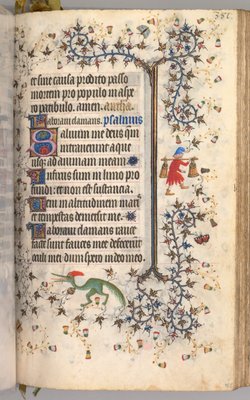 et sine causa predito passo
mortem pro populo in aspe
ro patibulo. amen. antha.
Laborau clamans. psalmus
Saluum me deus qm
intrauerunt aque
usq ad animam meam
Infixus sum in limo pro
fundi: et non est sustancia.
Ueni in altitudinem mari
et tempestas demersit me.
Laboraui clamans rauce
facte sunt fauces mee defecerunt
oculi mei dum spero in deo meo.